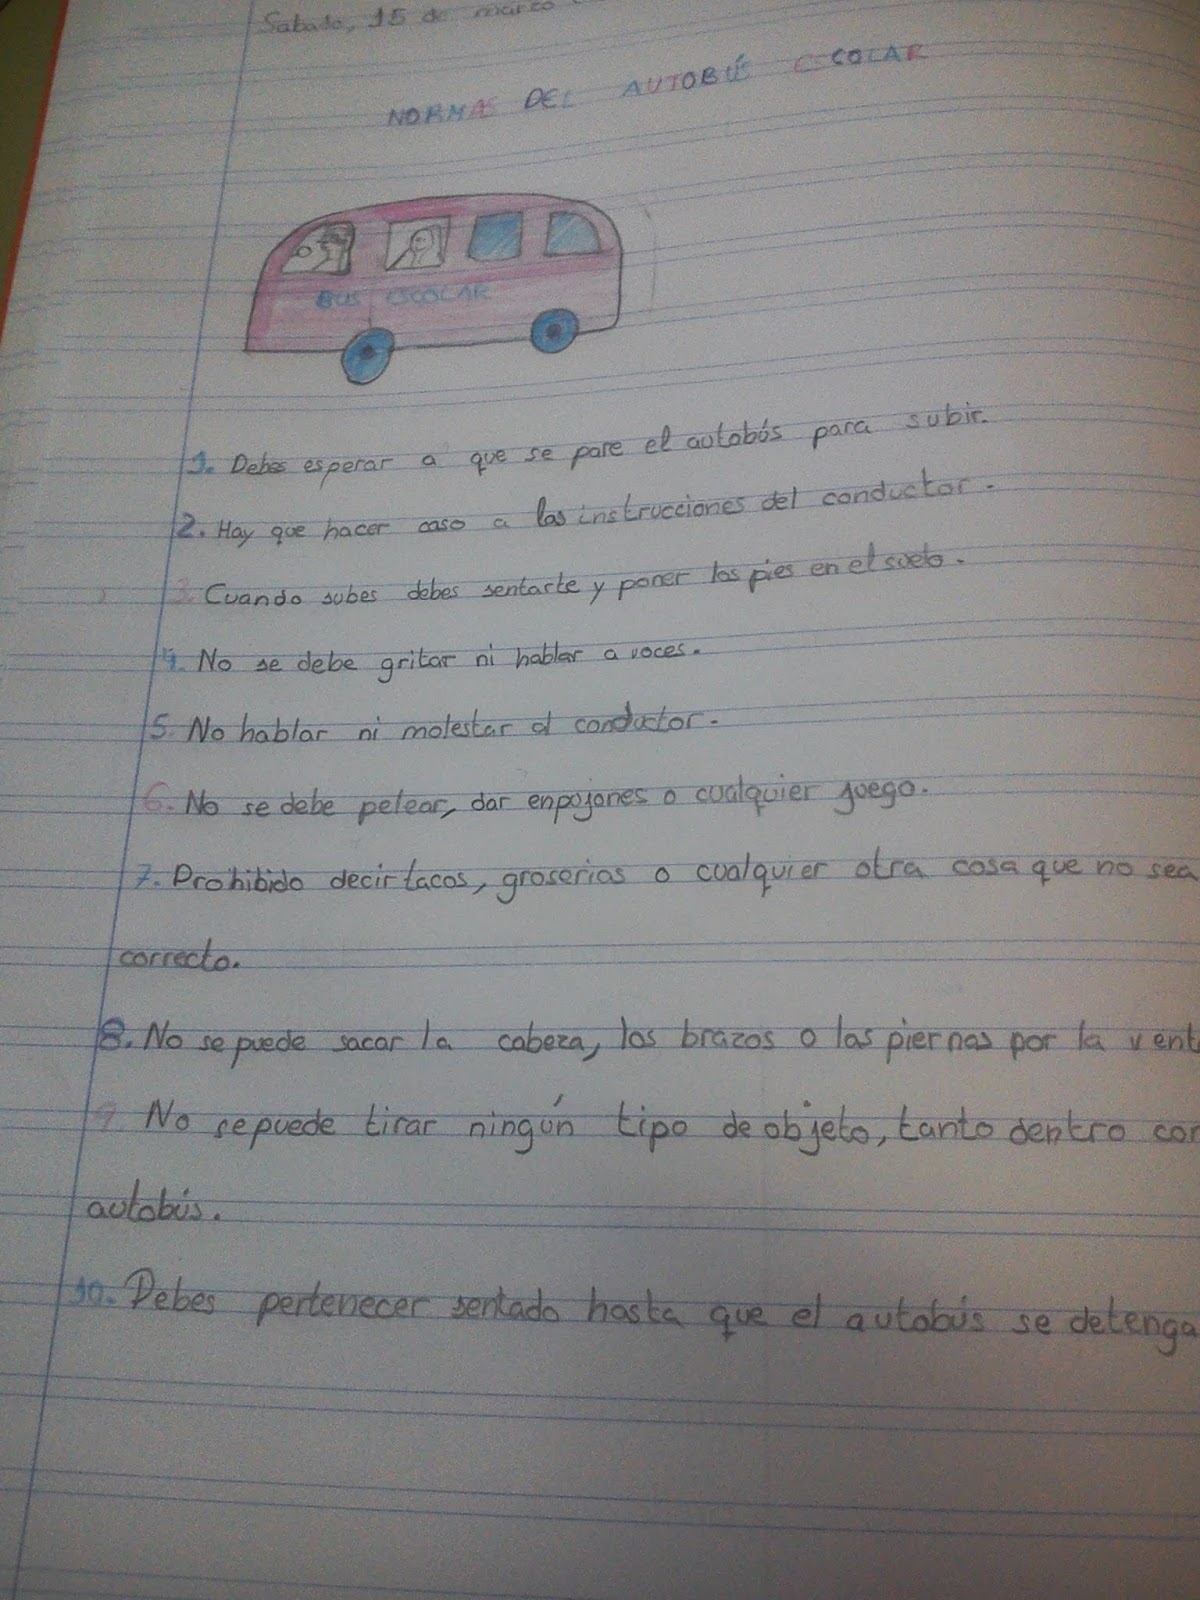 Sabado, 15 de marzo
NORMAS DEL AUTOBÚS ESCOLAR
BUS ESCOLAR
1. Debes esperar a que se pare el autobús para subir.
2. Hay que hacer caso a las instrucciones del conductor.
3. Cuando subes debes sentarte y poner los pies en el suelo.
4. No se debe gritar ni hablar a voces.
5. No hablar ni molestar al conductor.
6. No se debe pelear, dar enpojones o cualquier juego.
7. Prohibido decir tacos, groserias o cualquier otra cosa que no sea
correcto.
8. No se puede sacar la cabeza, los brazos o las piernas por la vent
9. No se puede tirar ningún tipo de objeto, tanto dentro com
autobús.
10. Debes pertenecer sentado hasta que el autobús se detenga